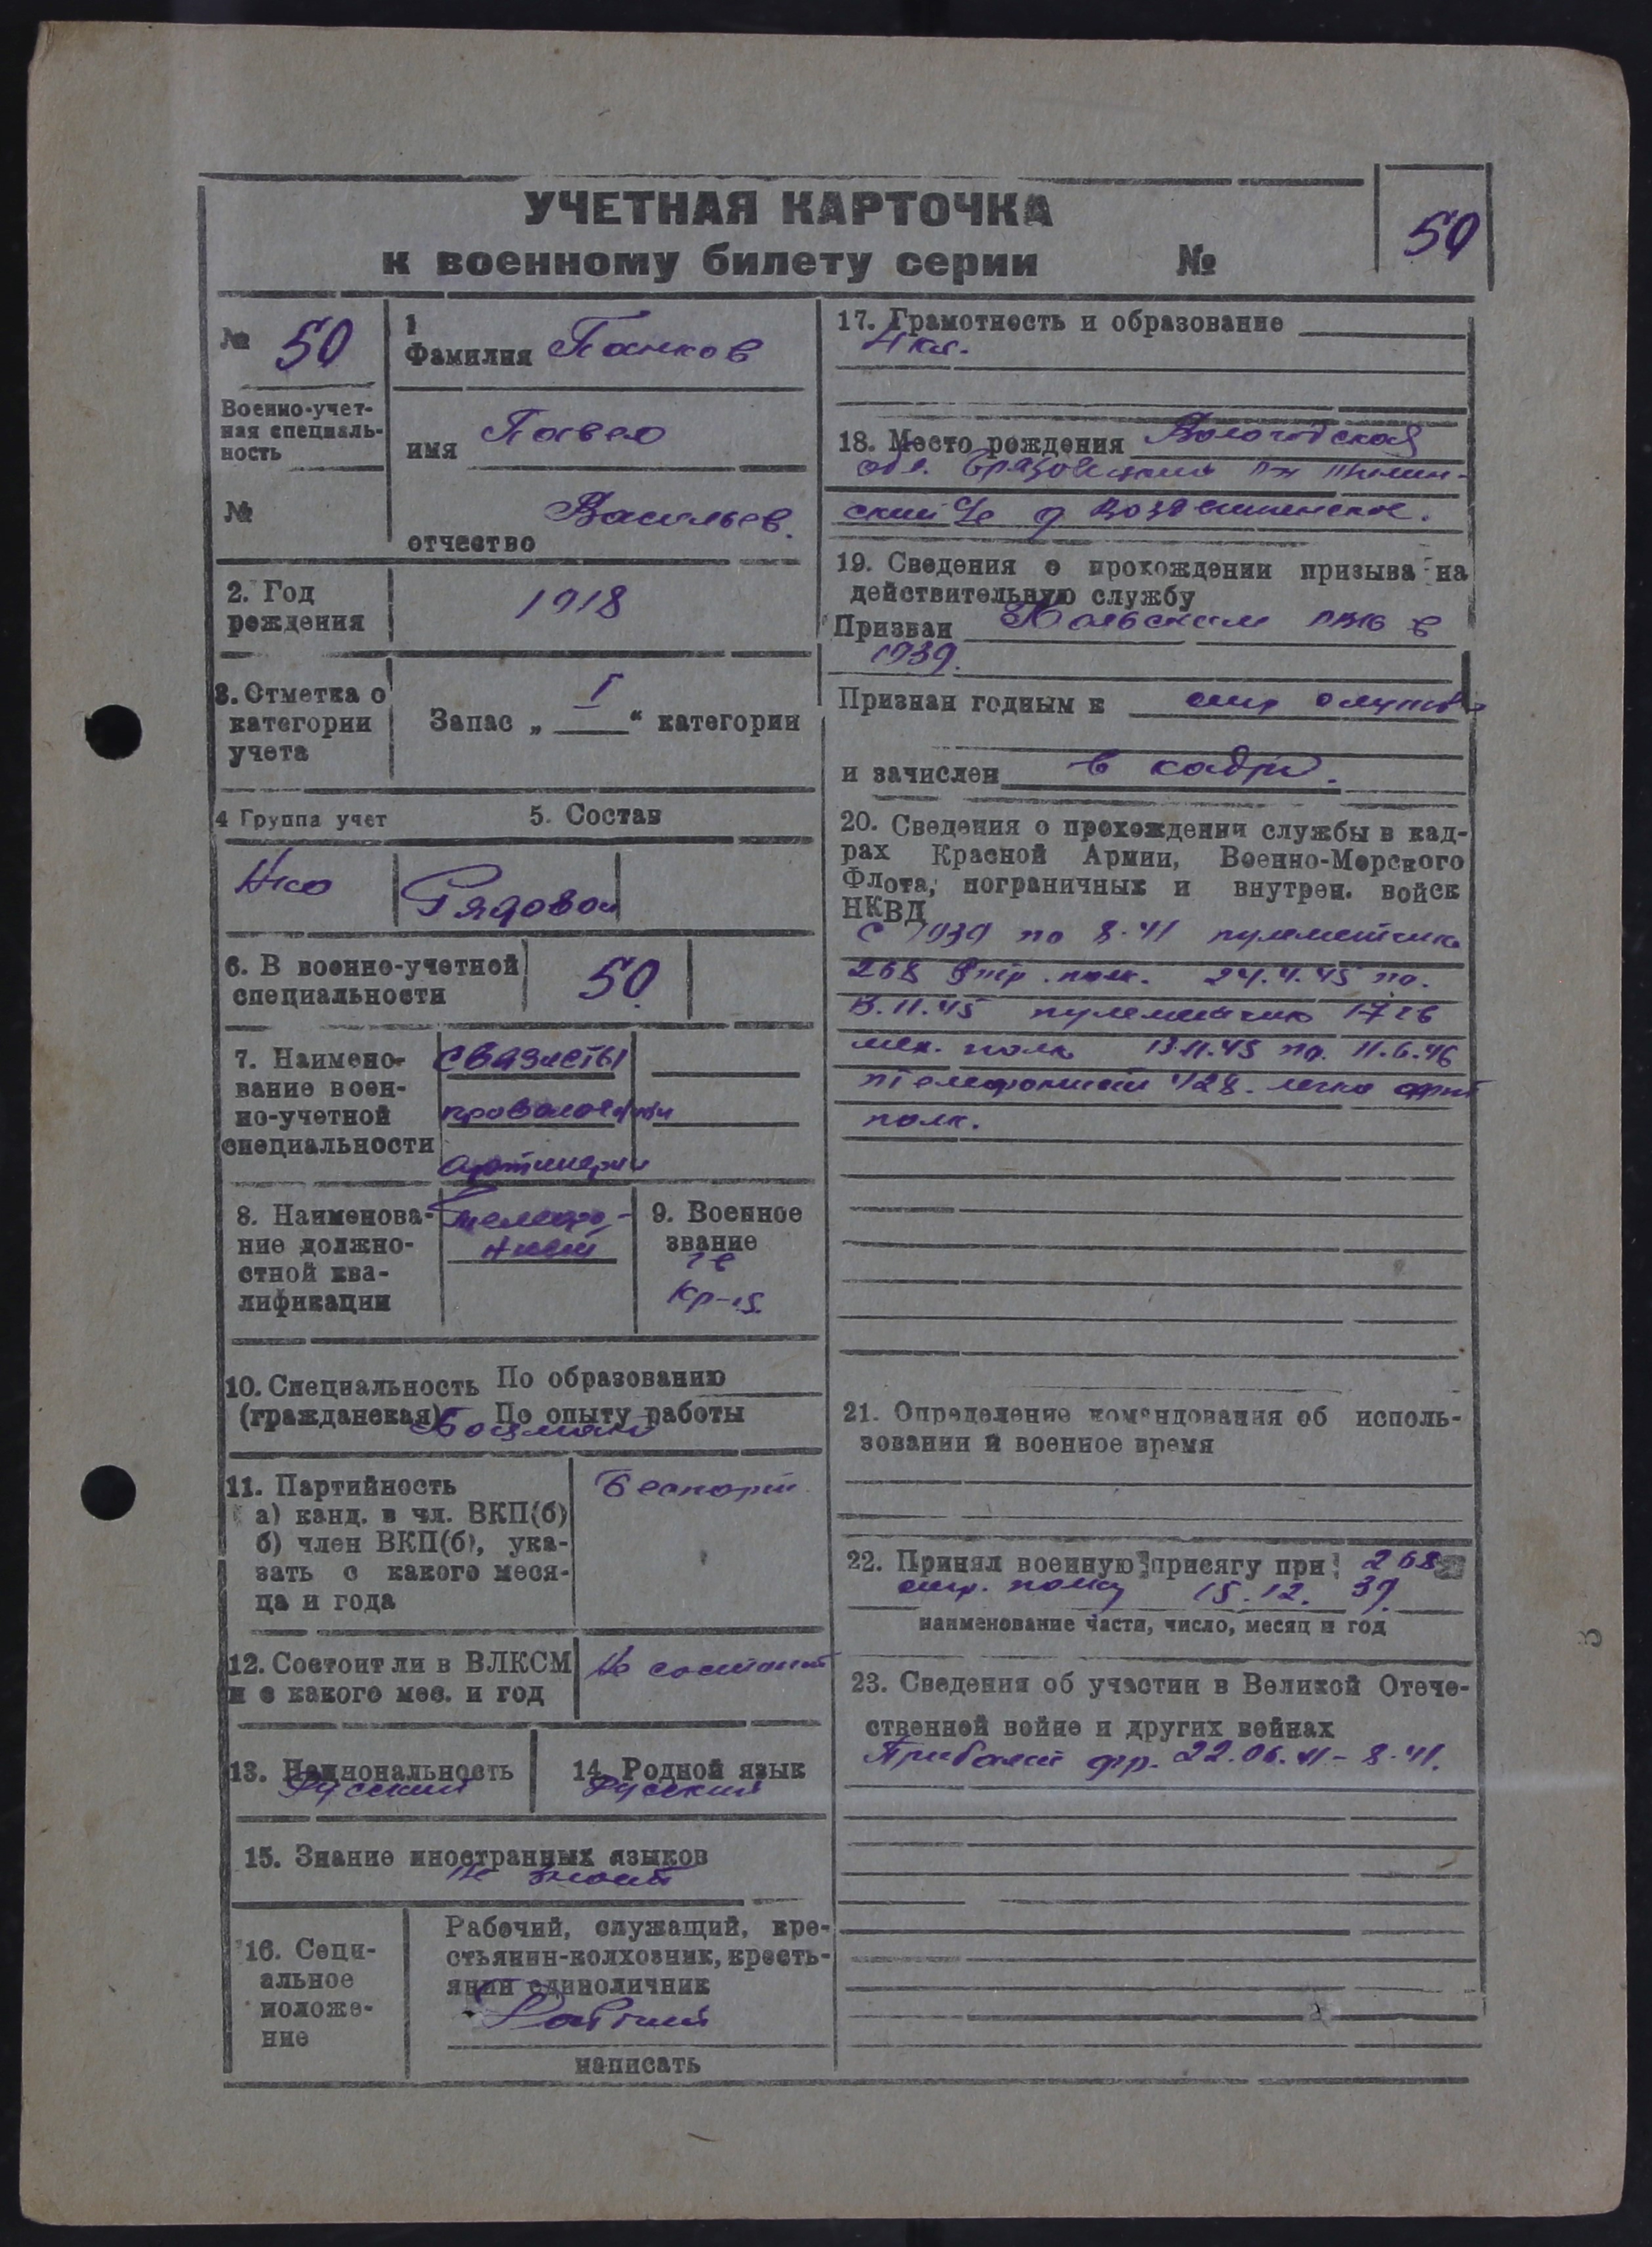 УЧЕТНАЯ КАРТОЧКА
к военному билету серии №
50
№ 50
Военно-учет-
ная специаль-
ность
№
1
Фамилия Панков
имя Павел
Васильев.
отчество
2. Год
рождения
1918
3. Отметка о
категории
учета
Запас „ I “ категории
4 Группа учет
5. Состав
Рядовой
6. В военно-учетной
специальности
50
7. Наимено-
вание воен-
но-учетной
специальности
связисты
проволочный
артиллерии
8. Наименова-
ние должно-
стной ква-
лификации
телефо-
нист
9. Военное
звание
гв
кр-ц
10. Специальность По образованию
(гражданская) По опыту работы
Боцман
11. Партийность
а) канд. в чл. ВКП(б)
б) член ВКП(б), ука-
зать с какого меся-
ца и года
Беспарт.
12. Состоит ли в ВЛКСМ
и с какого мес. и год
Не состоит
13. Национальность
Русский
14. Родной язык
Русский
15. Знание иностранных языков
не знает
16. Соци-
альное
положе-
ние
Рабочий, служащий, кре-
стьянин-колхозник, кресть-
янин единоличник
Рабочий
написать
17. Грамотность и образование
4 кл.
18. Место рождения Вологодская
обл.
с/с д Воздвиженское.
19. Сведения о прохождении призыва на
действительную службу
Призван Кольским РВК в
1939.
Признан годным к стр службе
и зачислен в кадры.
20. Сведения о прохождении службы в кад-
рах Красной Армии, Военно-Морского
Флота, пограничных и внутрен. войск
НКВД
с 1939 по 8.41 пулеметчик
268 стр. полк. 24.4.45 по.
13.11.45 пулеметчик 17 гв
мех. полк 13.11.45 по. 11.6.46
телефонист 428. легко арт
полк.
21. Определение командования об исполь-
зовании в военное время
22. Принял военную присягу при 268
стр. полку 15.12. 39.
наименование части, число, месяц и год
23. Сведения об участии в Великой Отече-
ственной войне и других войнах
Прибалт фр. 22.06.41 - 8.41.
3